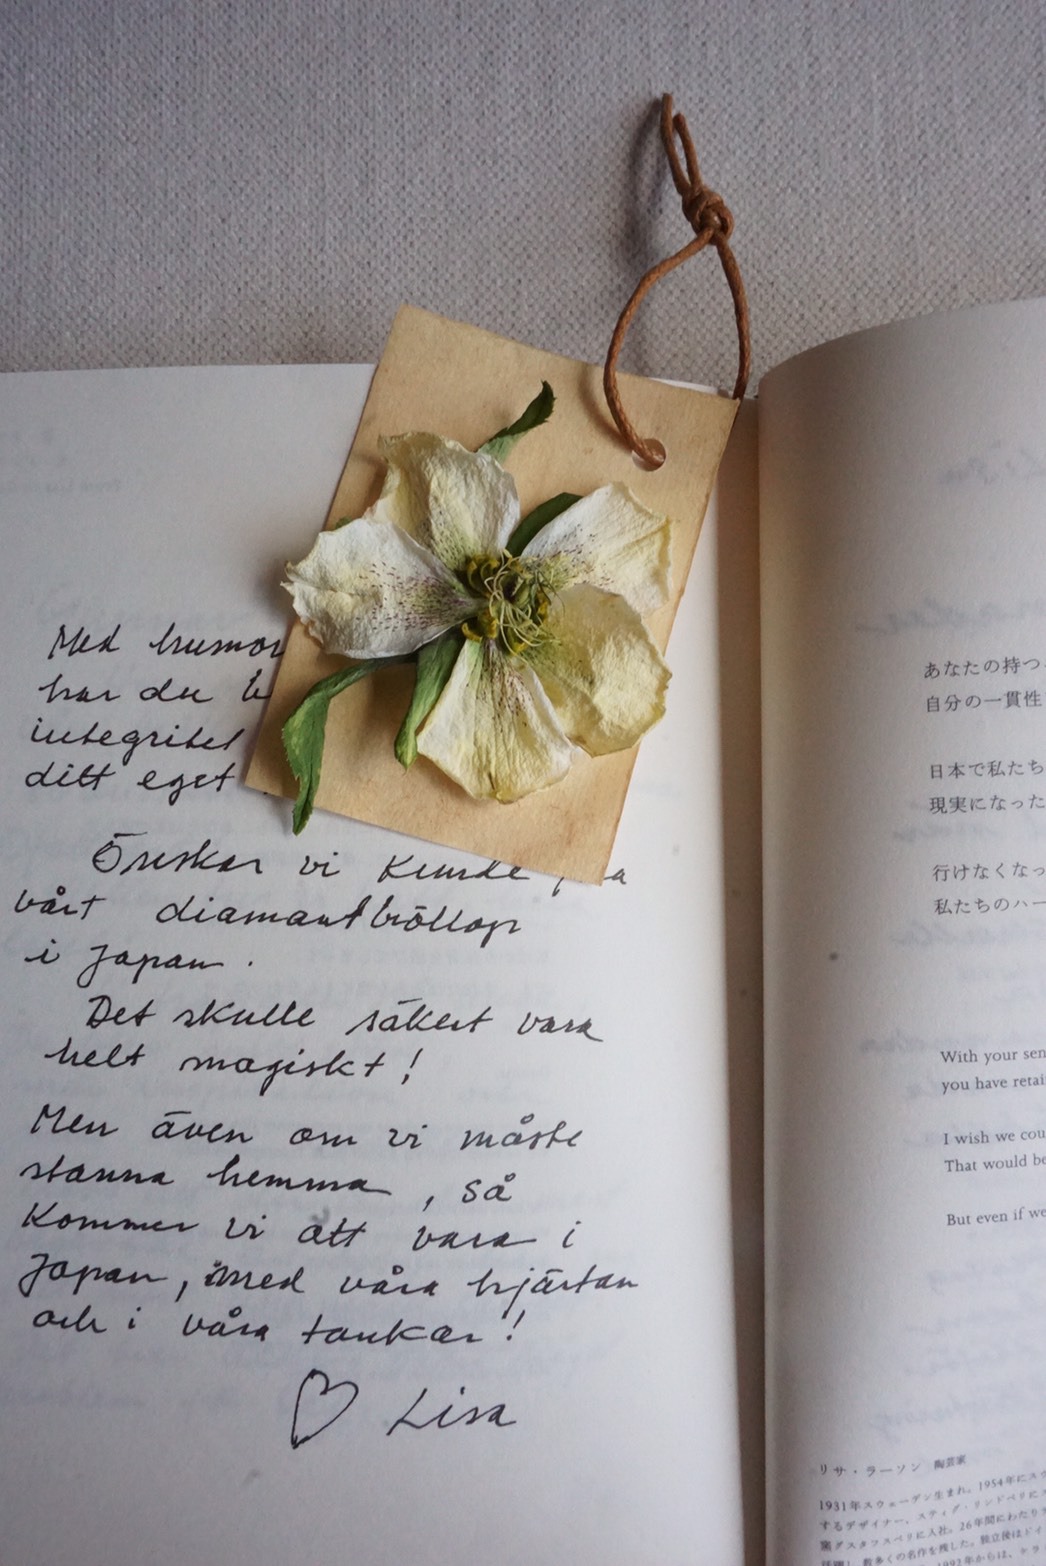 Med humor
har du
integritet
ditt eget
Önskar vi kunde
vårt diamantbröllop
i Japan.
Det skulle säkert vara
helt magiskt!
Men även om vi måste
stanna hemma, så
kommer vi att vara i
Japan, med våra hjärtan
och i våra tankar!
♡ Lisa
あなたの持つ
自分の一貫性
日本で私たち
現実になった
行けなくなっ
私たちのハー
With your sen
you have retai
I wish we cou
That would be
But even if we
リサ・ラーソン 陶芸家
1931年スウェーデン生まれ。1954年にス
するデザイナー、スティグ・リンドベリに
窯グスタフスベリに入社。26年間にわたり
数多くの名作を残した。独立後はドイ